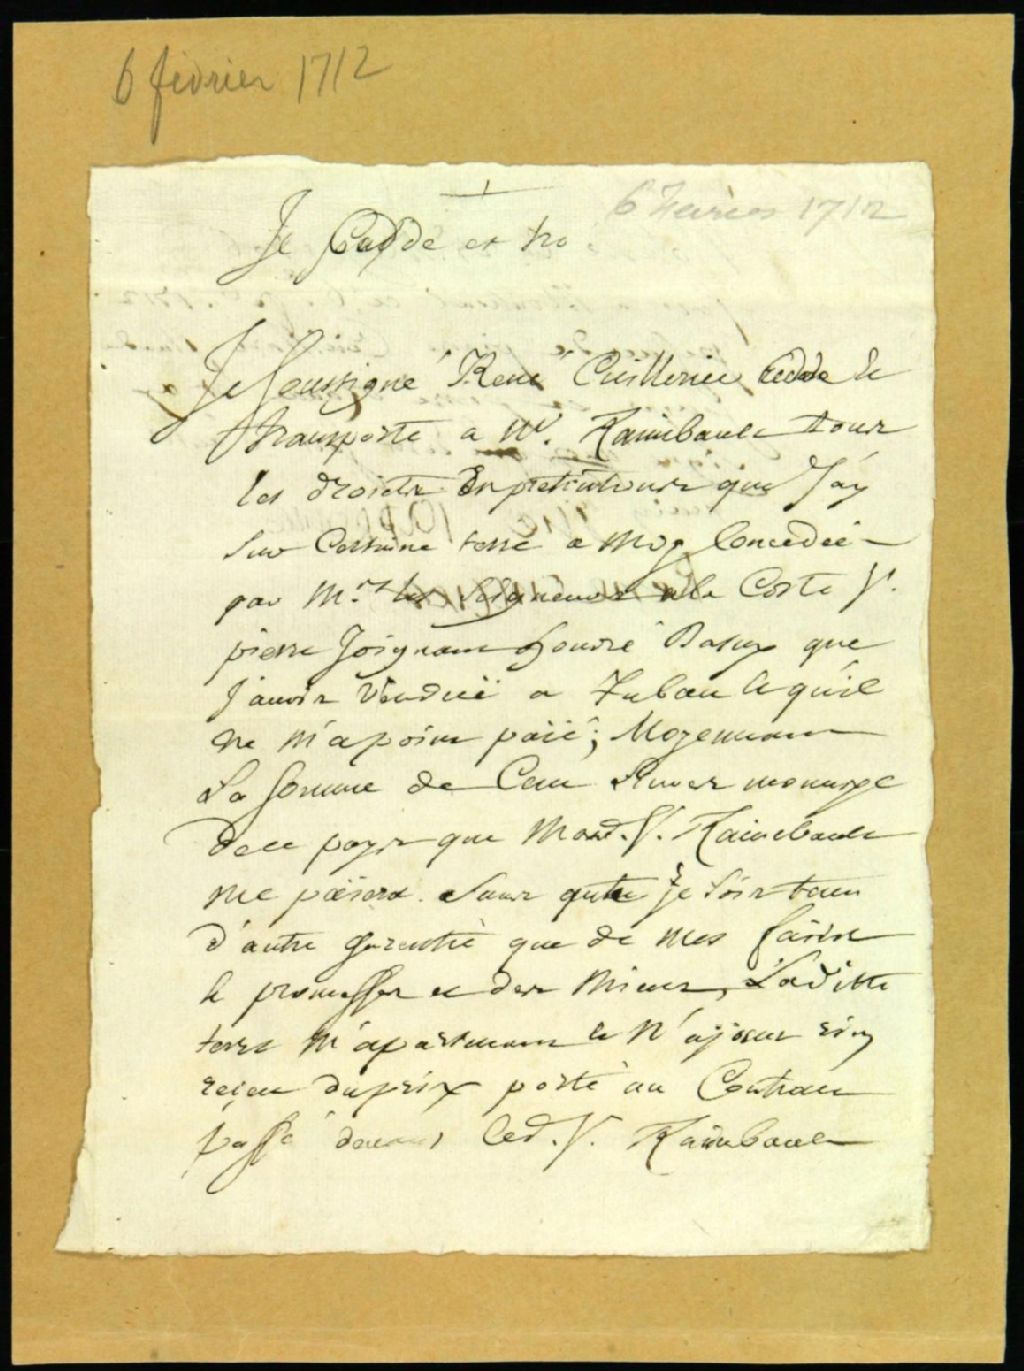 6 février 1712
6 Fevrier 1712
Je Cedde et tra
Je Soussigné René Cuillerier Cedde &
transporte a Mr. Raimbault tous
les droits & pretentions que J'ay
sur Certaine terre a Moy Concedée
par Mrs. les Seigneurs a la Coste St.
pierre Joignant honoré que
J'avois Venduë a le qu'il
ne m'a point païé; Moyennant
La Somme de Cent livres monnoye
de ce pays que Mond. S. Raimbault
me païera. Sans que je sois tenu
d'autre garentie que de Mes faits
& promesses et des Miens, Laditte
terre m'apartenant & N'ajant rien
reçeu du prix porté au Contract
passé devant led. S. Raimbault